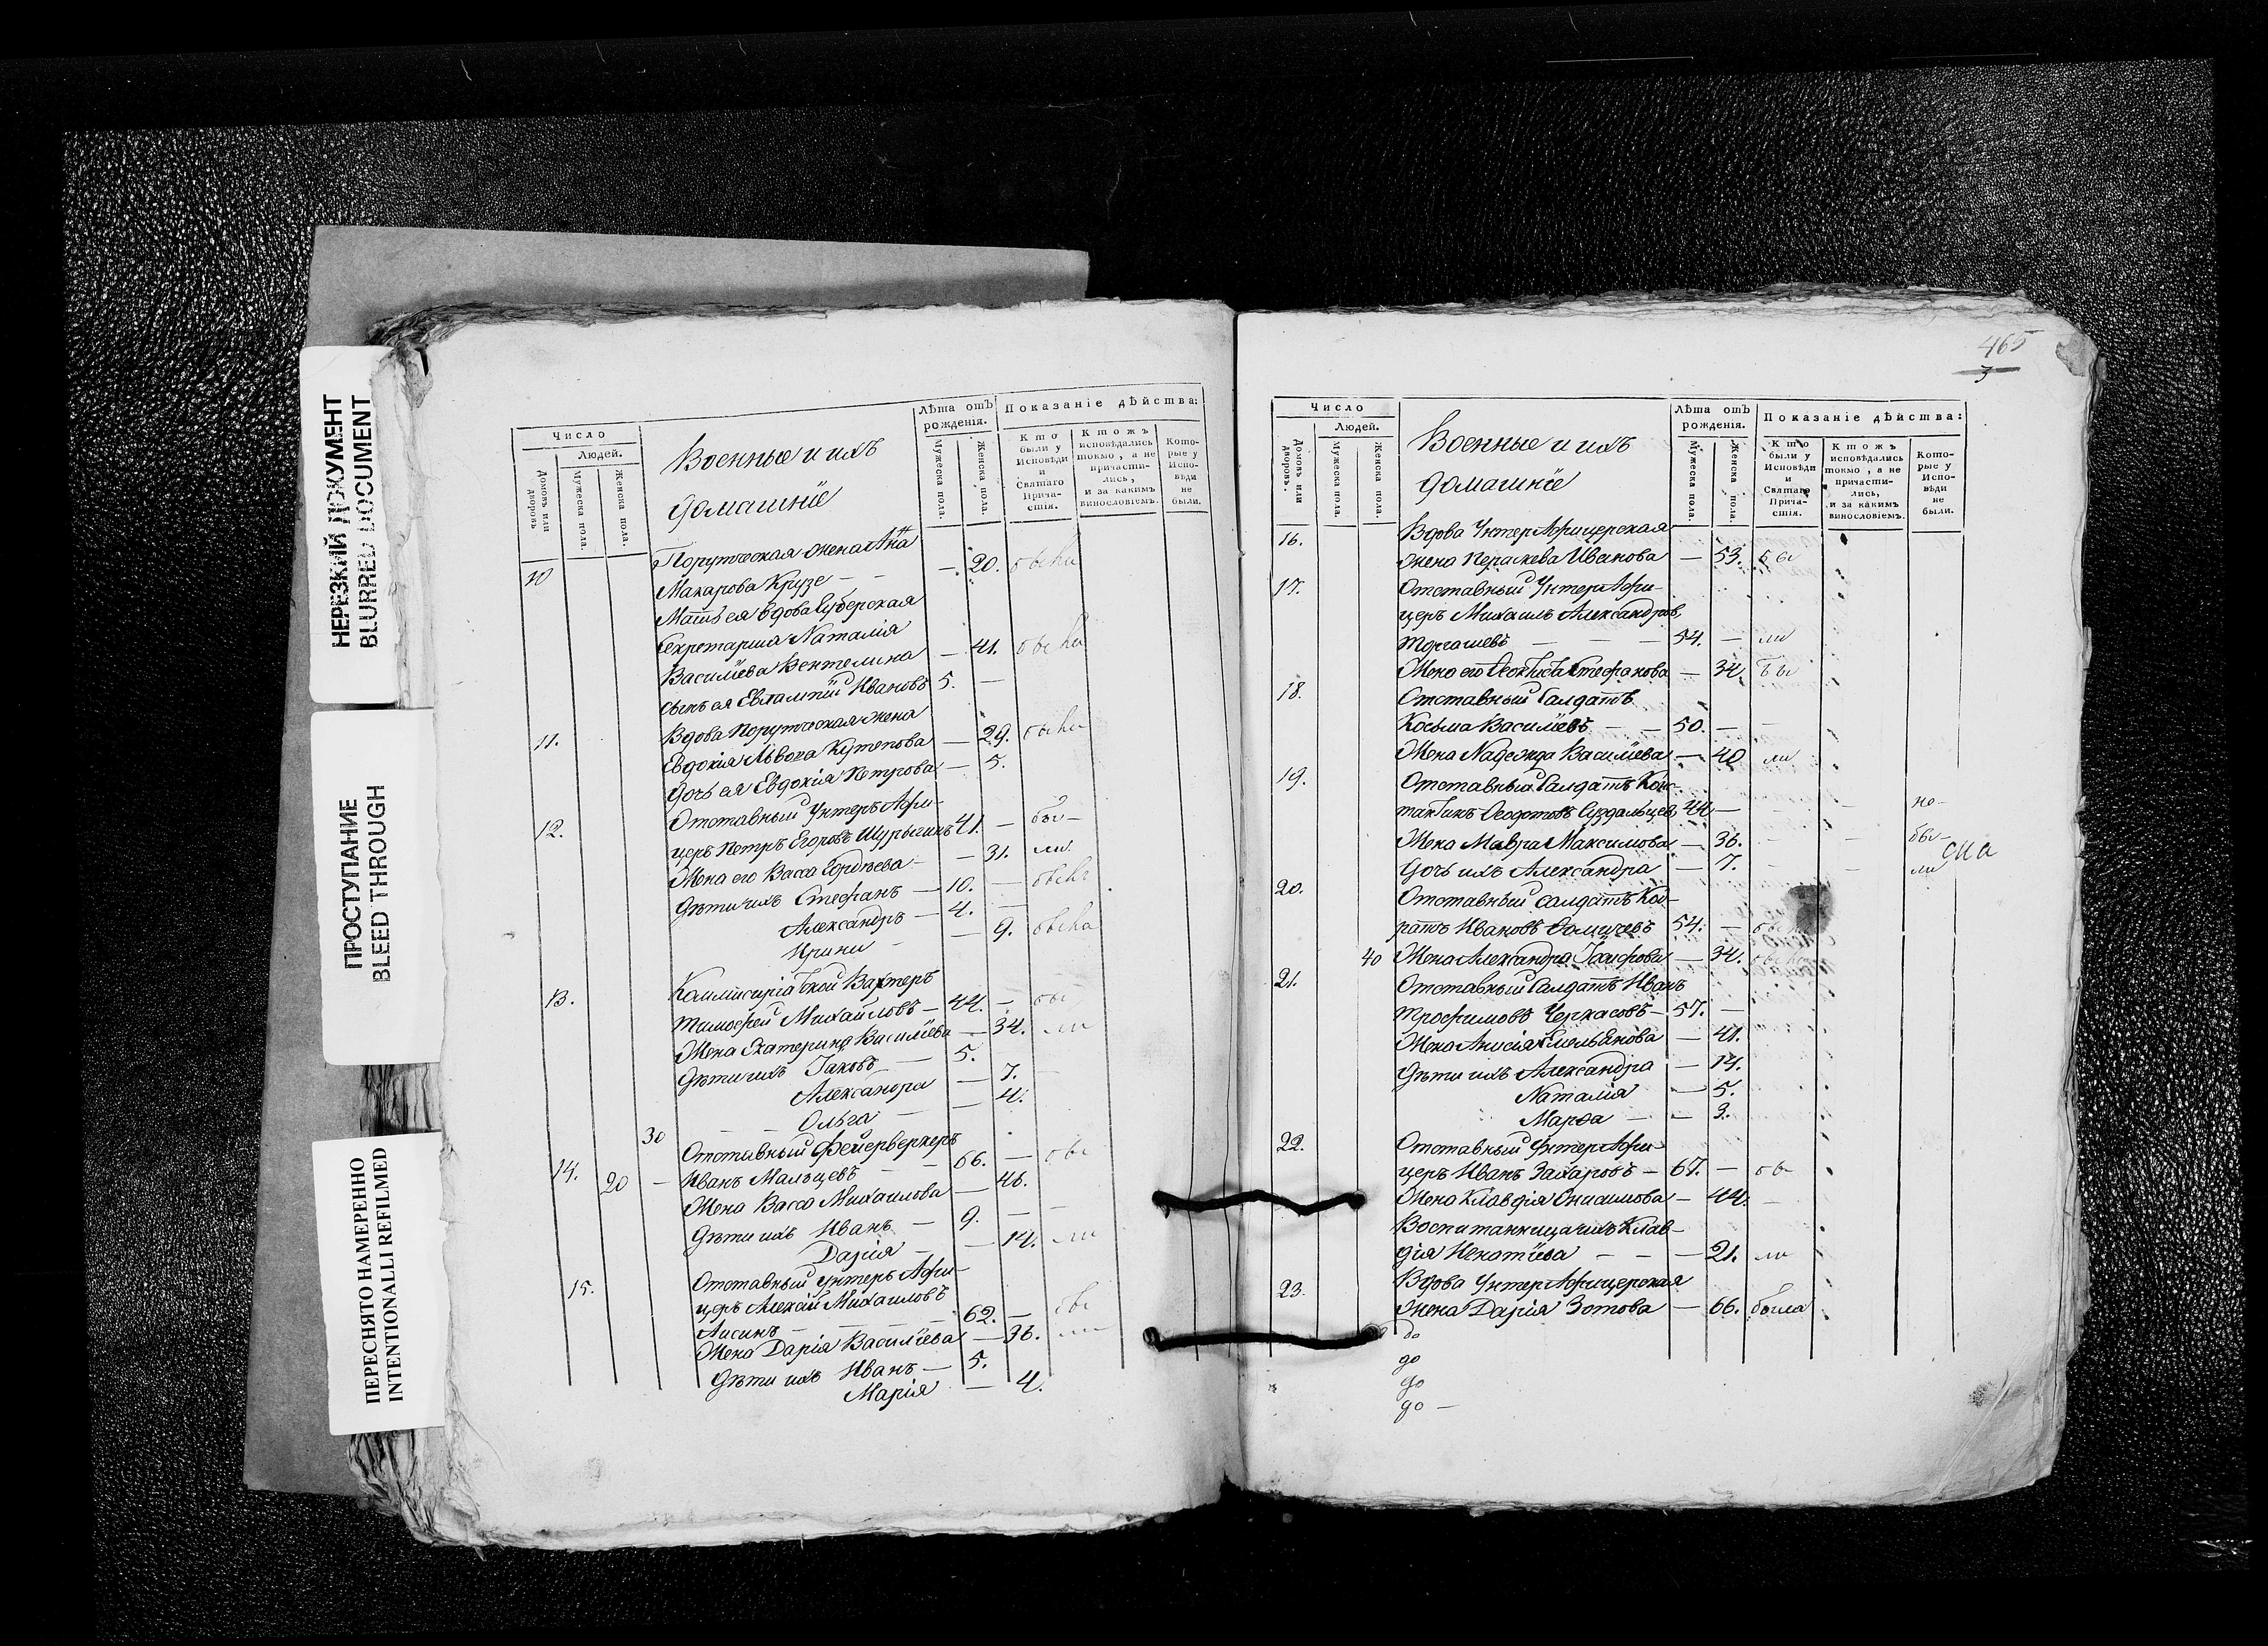 НЕРЕЗКИЙ ДОКУМЕНТ
BLURRED DOCUMENT
ПРОСТУПАНИЕ
BLEED THROUGH
ПЕРЕСНЯТО НАМЕРЕННО
INTENTIONALLI REFILMED
Число
Людей.
Домовъ или дворовъ
Мужеска пола.
Женска пола.
Военные и ихъ
домашнїе
Лѣта отъ рожденія.
Мужеска пола.
Женска пола.
Показаніе дѣйства:
Кто были у Исповѣди и Святаго Причастія.
Ктожъ исповѣдались токмо, а не причастились, и за какимъ винословіемъ.
Которые у Исповѣди не были.
10 Порутческая жена Анна
Макарова Крузе — — 20.
Мать ея вдова Губерская
Секретарша Наталія
Васильева Вентелина — 41.
сынъ ея Евлампій Ивановъ 5. —
11. Вдова порутческая жена
Евдокія Львова Кутепова — 29.
Дочь ея Евдокія Петрова — 5.
12. Отставный Унтеръ Афи-
церъ Петръ Егоровъ Шурыгинъ 41. — бы-
Жена его Васса Гордѣева — 31. ли
дѣти ихъ Стефанъ — 10. —
Александръ — 4. —
Ирина — 9.
13. Вахтеръ
Тимофей Михайловъ — 44. — бы
Жена Екатерина Васильева — 34. ли
дѣти ихъ Іаковъ — 5.
Александра — 7. —
Ольга — — 4.
30
Отставный Фейерверкеръ
14. 20 — Иванъ Мальцевъ — — 66. — бы
Жена Васса Михаилова — 46.
дѣти ихъ Иванъ — 9. — —
Дарія — — 14. ли
15. Отставный Унтеръ Афи-
церъ Алексій Михаиловъ
Лисинъ — — — 62. — бы
Жена Дарія Васильева — 36. ли
дѣти ихъ Иванъ — 5.
Марія — 4.
465
3
Число
Людей.
Домовъ или дворовъ.
Мужеска пола.
Женска пола.
Военные и ихъ
домашнїе
Лѣта отъ рожденія.
Мужеска пола.
Женска пола.
Показаніе дѣйства:
Кто были у Исповѣди и Святаго Причастія.
Ктожъ исповѣдались токмо, а не причастились, и за какимъ винословіемъ.
Которые у Исповѣди не были.
16. Вдова Унтер Афицерская
жена Пераскева Иванова — 53. бы
17. Отставный Унтер Афи-
церъ Михаилъ Александров
Торгашевъ — — — 54. — ли
Жена его Стефанова — 34. бы
18. Отставный Салдатъ
Косьма Васильевъ — 50. — —
Жена Надежда Васильева — 40 ли
19. Отставный Салдатъ Конс-
тантинъ Ѳеодотовъ Суздальцев 44 — — — не-
Жена Мавра Максимова — 36. — — бы-
Дочь ихъ Александра — 7. — — ли
20. Отставный салдатъ Код-
ратъ Ивановъ 54. —
40 Жена Александра — 34.
21. Отставный Салдатъ Иванъ
Трофимовъ Черкасовъ — 57. —
Жена Анисія Емельянова — 41.
дѣти ихъ Александра — 14.
Наталія — 5.
Марѳа — — 3.
22. Отставный Унтер Афи-
церъ Иванъ Захаровъ — 67. — бы
Жена Клавдія Онисимова — 44. —
Воспитанница ихъ Клав-
дія Игнатіева — — — 21. ли
23. Вдова Унтер Афицерская
жена Дарія Зотова — 66. была
до
до
до
до —